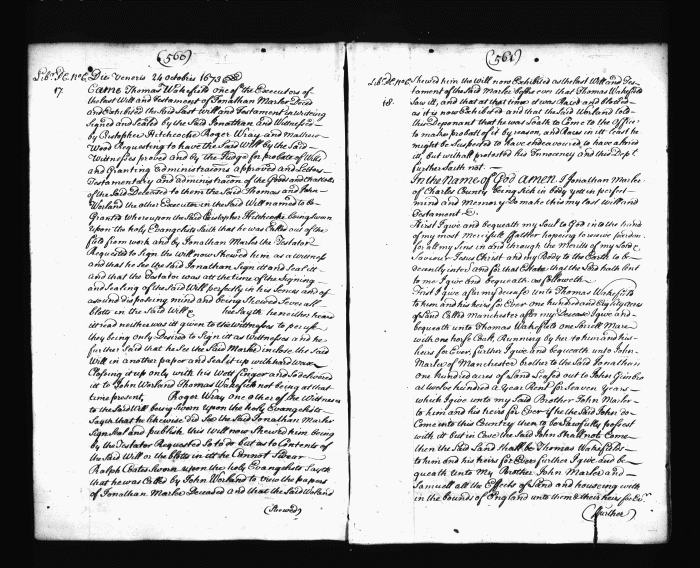 (560)
Lib.r I.C. no.C. Die Veneris 24 octobris 1673
17. Came Thomas Wakefield one of the Executors of
the last Will and Testament of Jonathan Marler Deced
and Exhibited the Said Last will and Testament in writeing
Signed and Sealed by the Said Jonathan and Witnessed
by Cristopher Hitchcocke Roger Wray and Mathew
Wood Requesting to have the Said Will by the Said
Witnesses proved and by the Judge for probate of Wills
and Granting administracions approved and Letters
Testamentary and administracon of the Goods and Chattells
of the Said Deceased to them the Said Thomas and John
Worland the other Executor in the Said Will named to be
Granted whereupon the Said Cristopher Hitchcocke being Sworn
upon the holy Evangelists Saith that he was Called out of the
field from work and by Jonathan Marler the Testator
Requested to Sign the Will now Shewed him as a witness
and that he See the Said Jonathan Sign itt and Seal itt
and that the Testator was att the time of the Signing
and Sealing of the Said Will perfectly in his Sences and of
a sound disposeing mind and being Shewed Severall
blotts in the Said Will he Sayth he neither heard
itt read neither was itt given to the Witnesses to peruse
they being only Desired to Sign itt as Witnesses and he
further Said that he See the Said Marler inclose the Said
Will in another paper and Seal it up with hard wax
Closeing it up only with his Wett finger and Delivered
itt to John Worland Thomas Wakefield not being at that
time present, Roger Wray one other of the Witnesses
to the Said Will being Sworn upon the holy Evangelists
Sayth that he likewise did See the Said Jonathan Marler
Sign Seal and publish this Will now Shewed him being
by the Testator Requested So to do but as to Contents of
the Said Will or the blotts in itt he Cannot Swear
Ralph Coates Sworn upon the holy Evangelists Sayth
that he was Called by John Worland to view the papers
of Jonathan Marler Deceased and that the Said Worland
(Shewed)
(561)
Lib.r I.C. no.C. Shewed him the Will now Exhibited as the last Will and Tes-
18. tament of the Said Marler before ever that Thomas Wakefield
Saw itt, and that at that time it was and blotted
as it is now Exhibited and that the Said Worland told
this Deponant that he was loath to Come to the Office
to make probate of it by reason, and in itt least he
might be Suspected to have endeavoured to have altered
itt, but withall protested his Innocency and this Dep.t
further Saith not.
In the Name of God Amen I Jonathan Marler
of Charles County being Sick in body yett in perfect
mind and Memory Do make this my last will and
Testament
First I give and bequeath my Soul to God into the hands
of my most mercifull ffather hopeing to receive pardon
for all my Sins in and through the Meritts of my Sole
Saviour Jesus Christ and my Body to the Earth to be
decently interr and for that Estate that the Lord hath lent
to me I give and bequeath as followeth
First I give after my decease unto Thomas Wakefield
to him and his heirs for Ever one hundred and Eighty acres
of Land Called Manchester after my Decease I give and
bequeath unto Thomas Wakefield one Sorrell Mare
with one horse Colt Running by her to him and his
heirs for Ever, further I give and bequeath unto John
Marler of Manchester brother to the Said Jonathan
one hundred acres of Land Leased out to John
at twelve hundred a year Rent for Seaven Years
which I give unto my Said Brother John Marler
to him and his heirs for Ever if he the Said John do
Come into this Country then to be Lawfully possest
with itt but in Case the Said John Shall not Come
then the Said Land Shall be Thomas Wakefields
to him and his heirs for Ever further I give and be
queath unto My Brother John Marler and
Samuell all the Effects of Land and houseing with
in the bounds of England unto them & their heirs for Ever
(further)